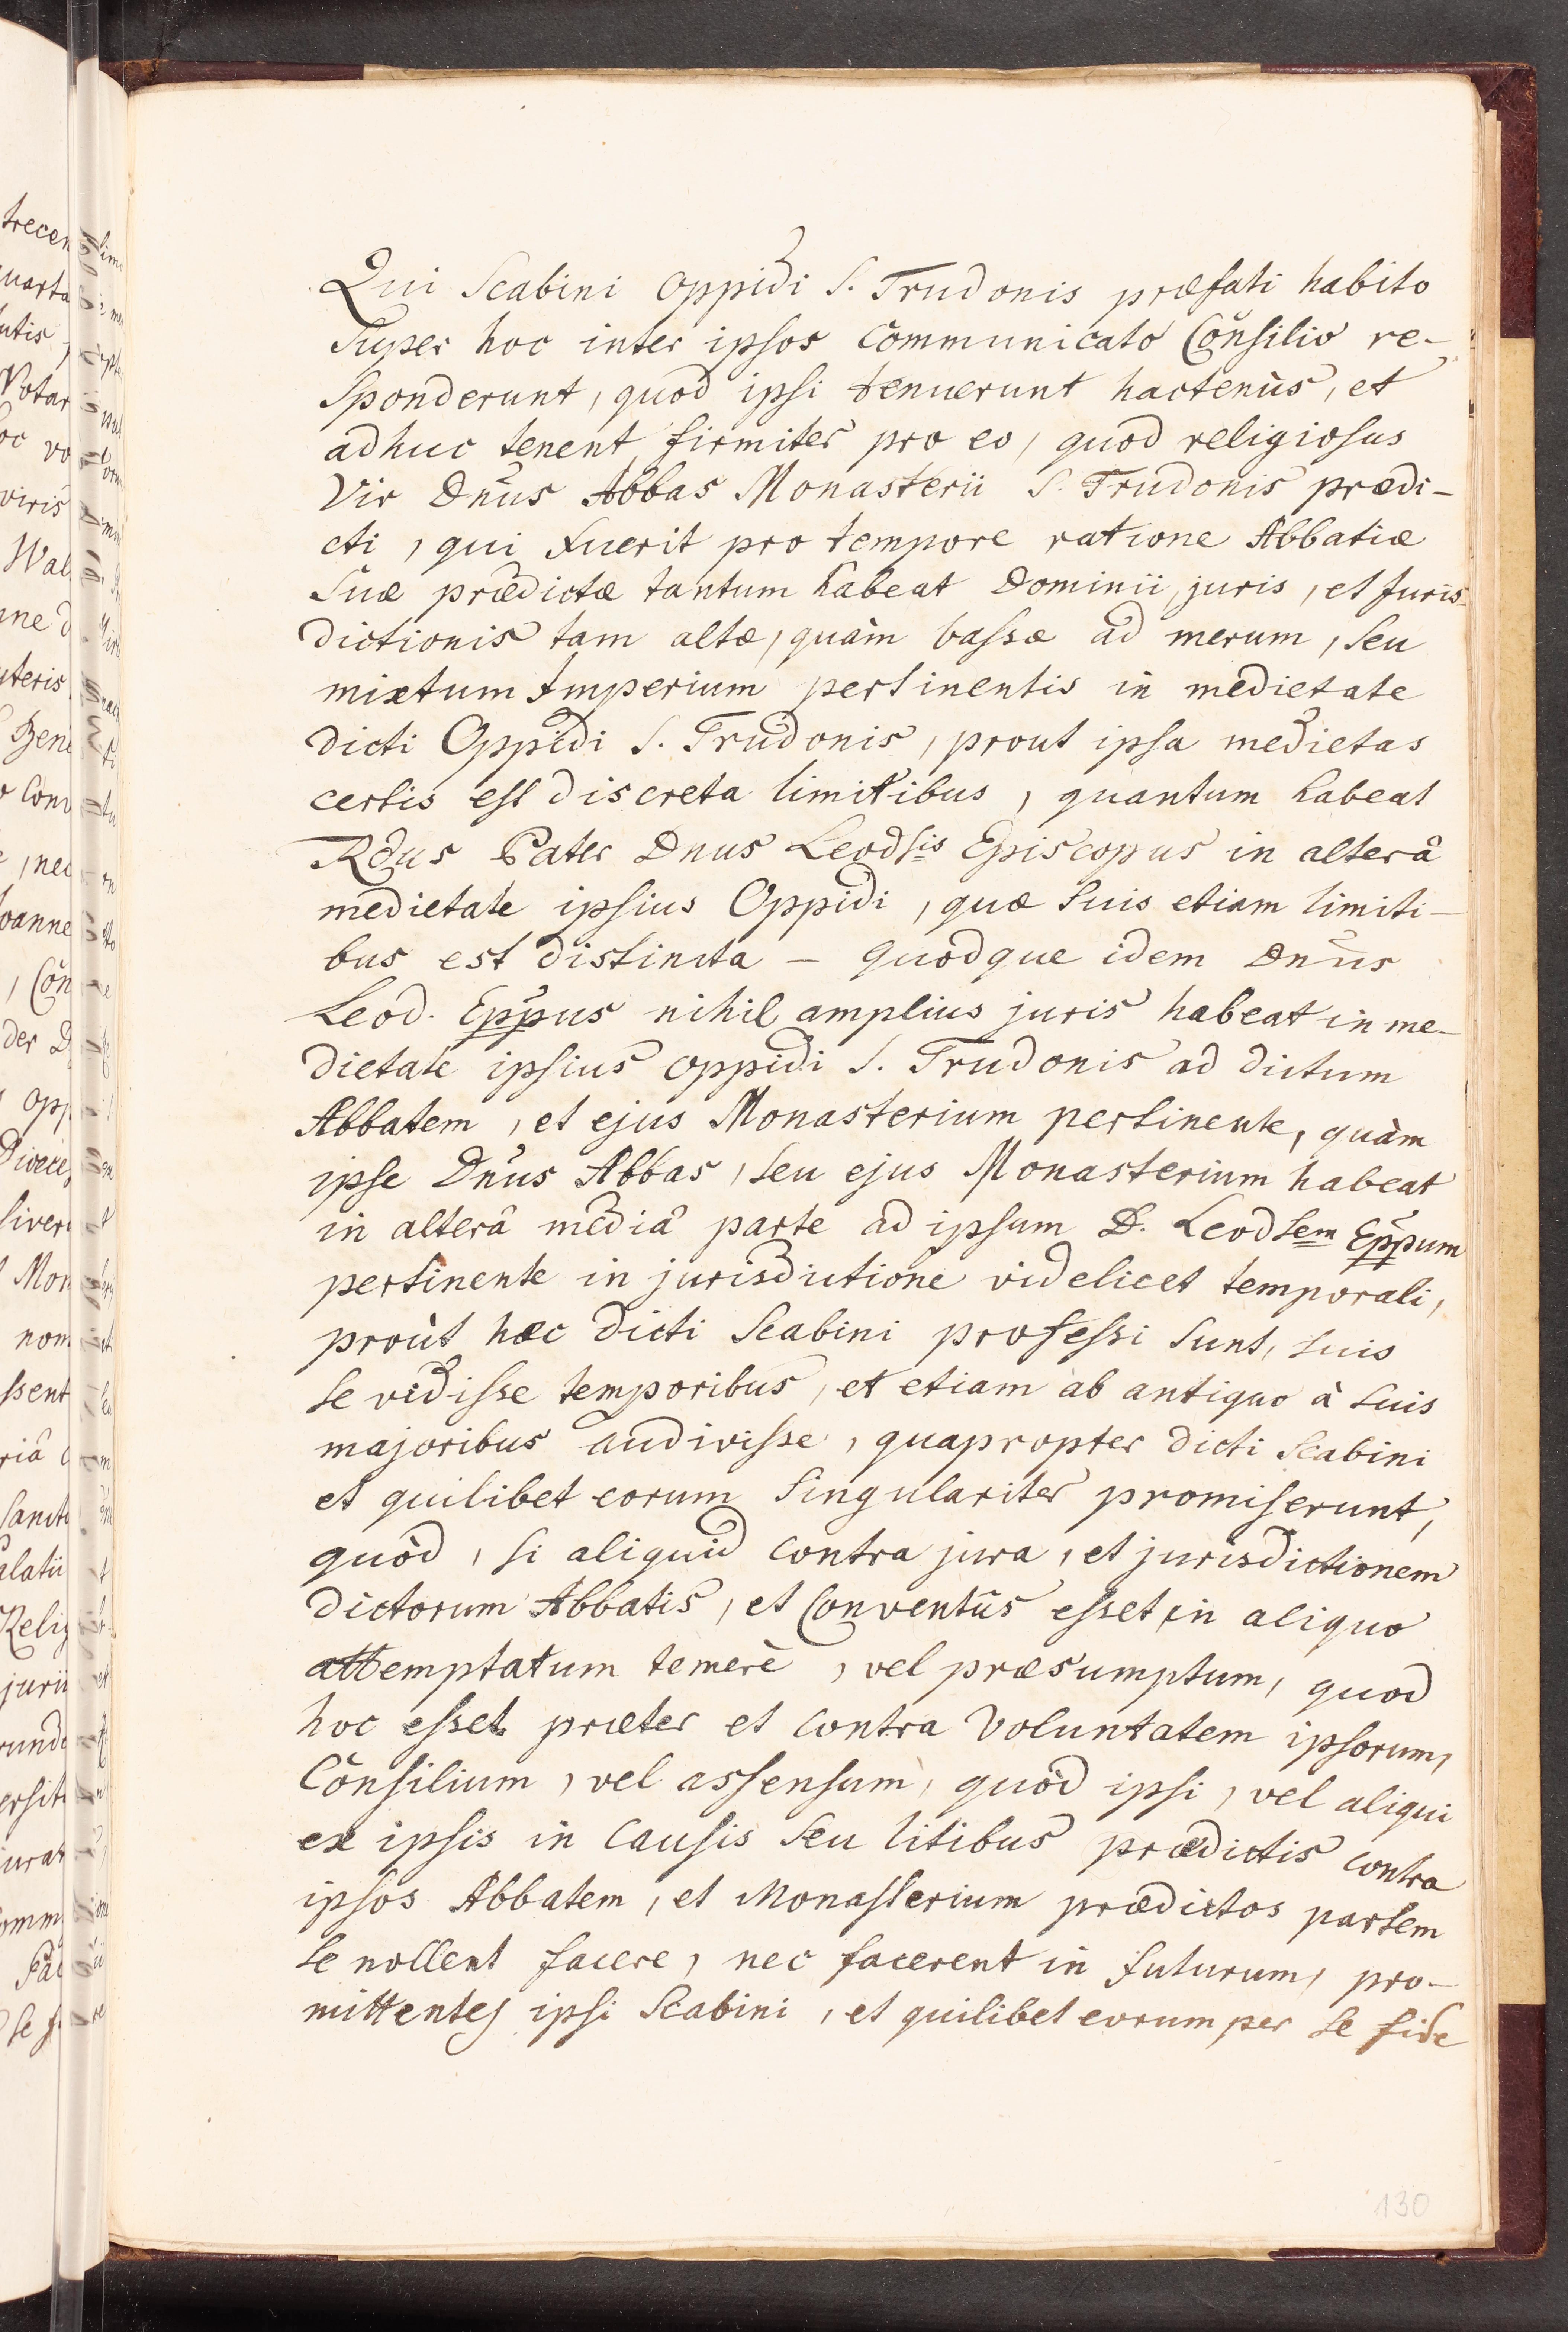 Qui Scabini Oppidi S. Trudonis præfati habito
super hoc inter ipsos communicato Consilio re-
sponderunt, quod ipsi tenuerunt hactenùs, et
adhuc tenent, firmiter pro eo, quod religiosus
Vir Dnus Abbas Monasterii S. Trudonis prædi-
cti, qui fuerit pro tempore ratione Abbatiæ
suæ prædictæ tantum habeat Dominii, juris, et Juris-
dictionis tam altæ, quàm bassæ ad merum, seu
mixtum Imperium pertinentis in medietate
dicti Oppidi S. Trudonis, prout ipsa medietas
certis est discreta limitibus, quantum habeat
Rdus Pater Dnus Leodsis Episcopus in alterâ
medietate ipsius Oppidi, quæ suis etiam limiti-
bus est distincta – quodque idem Dnus
Leod. Eppus nihil amplius juris habeat in me-
dietate ipsius oppidi S. Trudonis ad dictum
Abbatem, et ejus Monasterium pertinente, quàm
ipse Dnus Abbas, seu ejus Monasterium habeat
in alterâ mediâ parte ad ipsum D. Leodsem Eppum
pertinente in jurisdictione videlicet temporali,
proùt hæc dicti Scabini professi sunt, suis
se vidisse temporibus, et etiam ab antiquo à suis
majoribus audivisse, quapropter dicti Scabini
et quilibet eorum singulariter promiserunt,
quòd, si aliquid contra jura, et jurisdictionem
dictorum Abbatis, et Conventûs esset in aliquo
attemptatum temerè, vel præsumptum, quod
hoc esset præter et contra voluntatem ipsorum,
Consilium, vel assensum, quòd ipsi, vel aliqui
ex ipsis in causis seu litibus prædictis contra
ipsos Abbatem, et Monasterium prædictos partem
se nollent facere, nec facerent in futurum, pro-
mittentes ipsi Scabini, et quilibet eorum per se fide
130